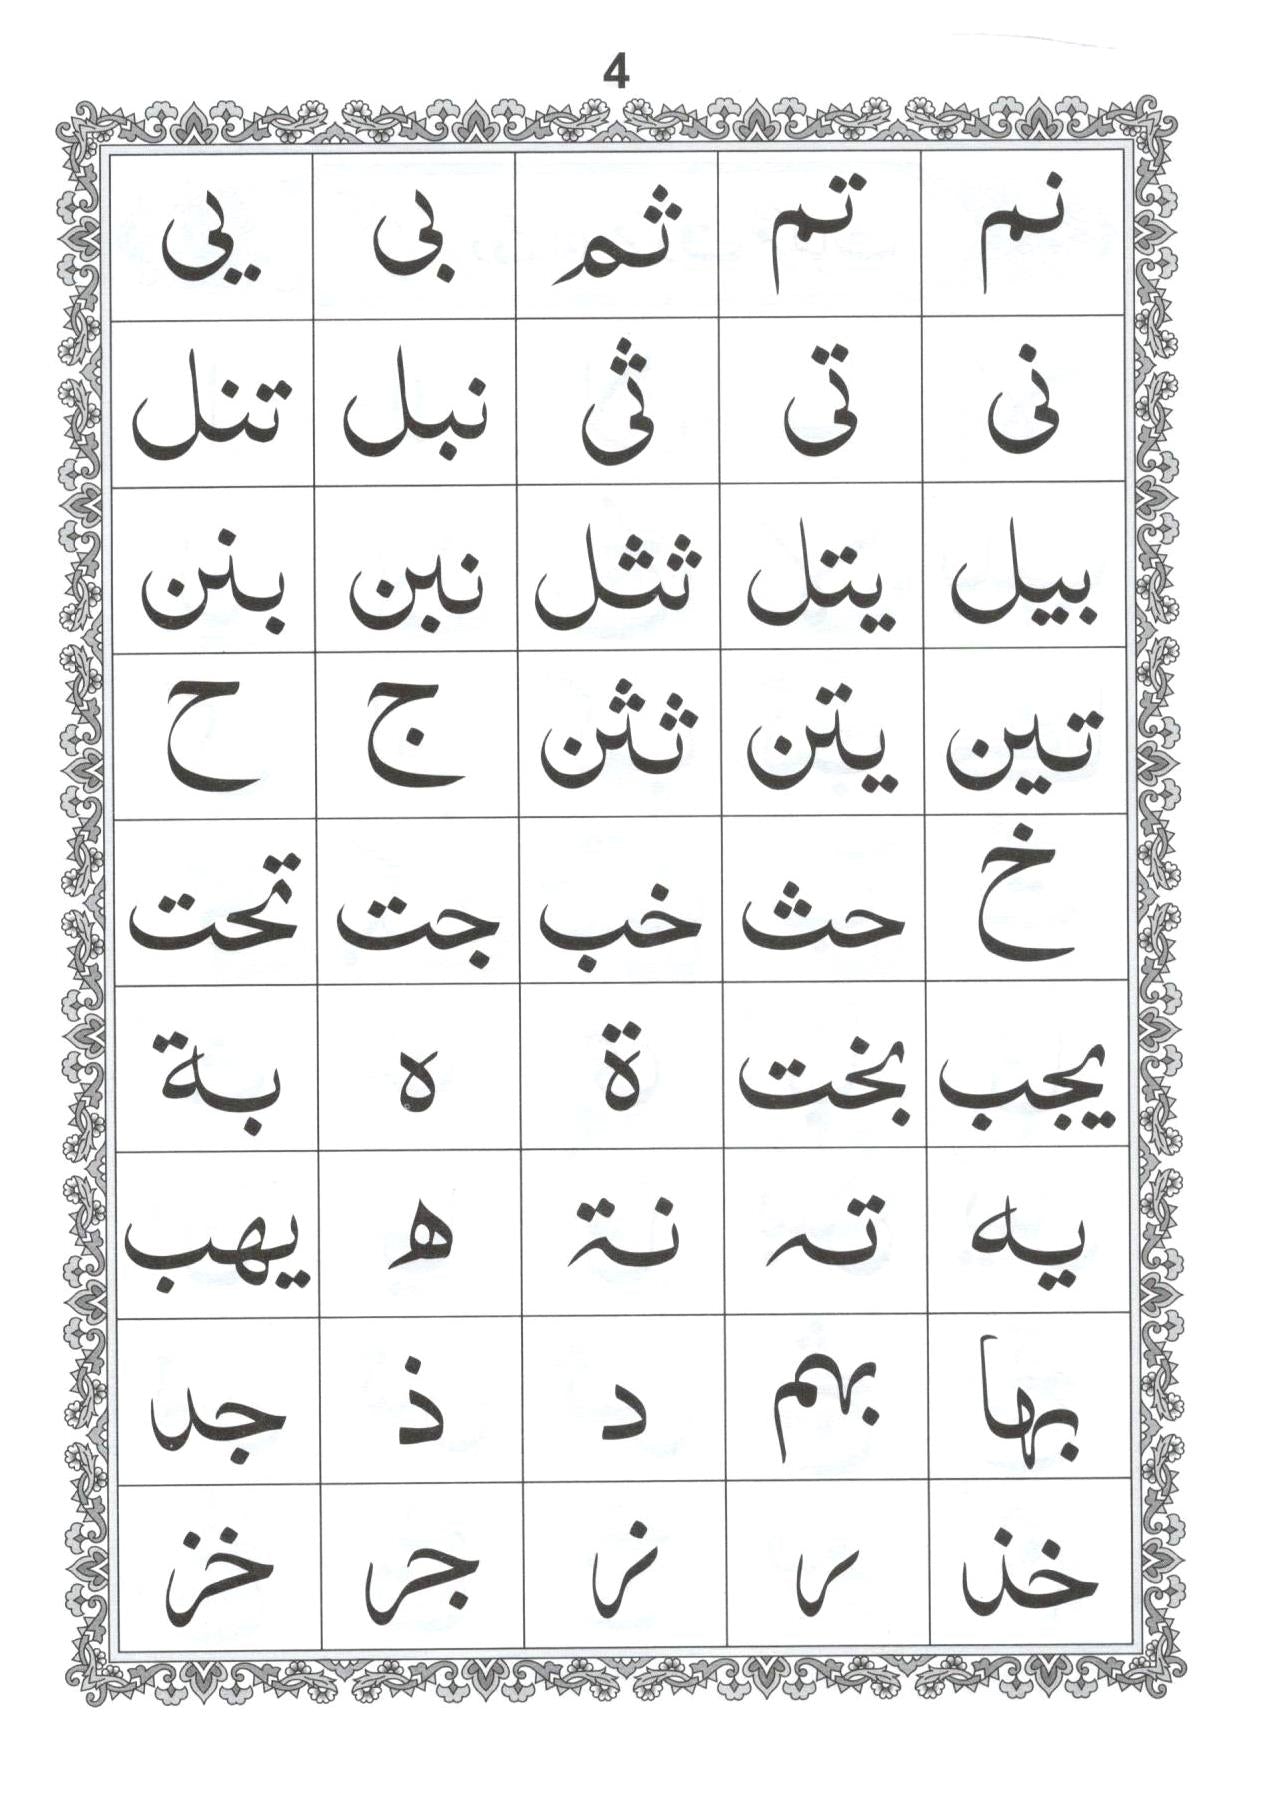 4
نم تم ثم بى يى
نى تى ثى نبل تنل
بيل يتل ثثل نبن بنن
تين يتن ثثن ج ح
خ حث خب جت تحت
يجب بخت ة ه بة
يه تہ نة ھ يهب
بها بهم د ذ جد
خذ ر ز جر خز